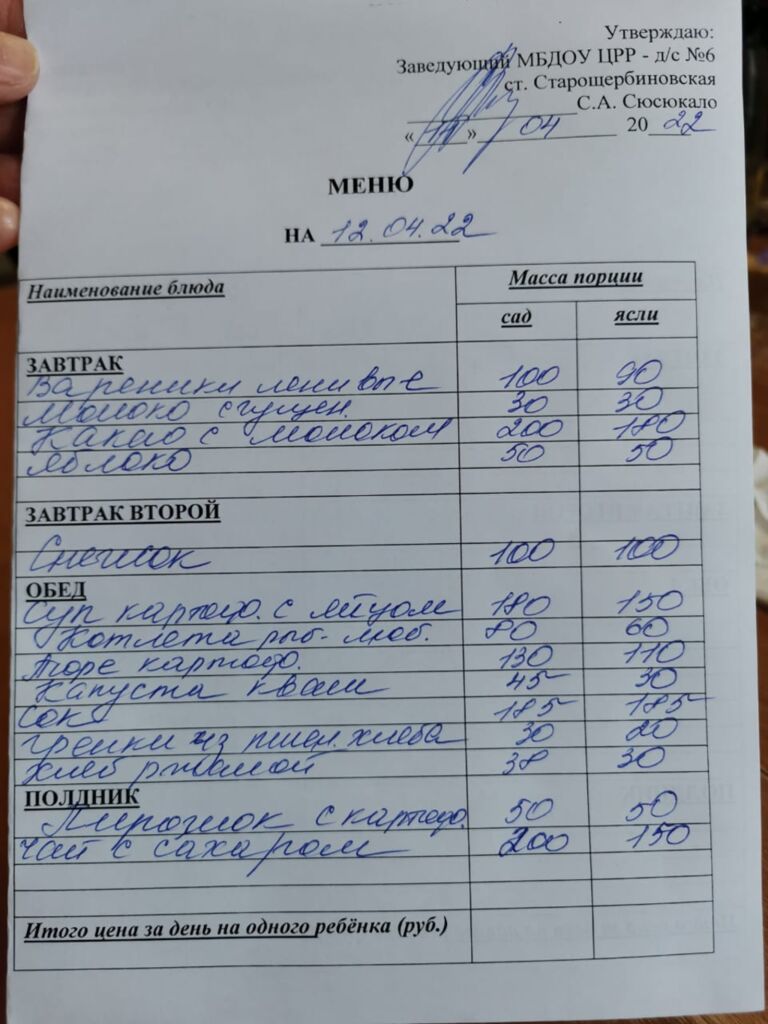 Утверждаю:
Заведующий МБДОУ ЦРР - д/с №6
ст. Старощербиновская
С.А. Сюсюкало
« » 04 2022
МЕНЮ
НА 12.04.22
Наименование блюда Масса порции
сад ясли
ЗАВТРАК
Вареники ленивые 100 90
Молоко сгущен. 30 30
Какао с молоком 200 180
Яблоко 50 50
ЗАВТРАК ВТОРОЙ
Снежок 100 100
ОБЕД
Суп картоф. с яйцом 180 150
Котлета рыб. люб. 80 60
Пюре картоф. 130 110
Капуста кваш 45 30
Сок 185 185
Гренки из пшен. хлеба 30 20
Хлеб ржаной 38 30
ПОЛДНИК
Пирожок с картоф. 50 50
Чай с сахаром 200 150
Итого цена за день на одного ребёнка (руб.)